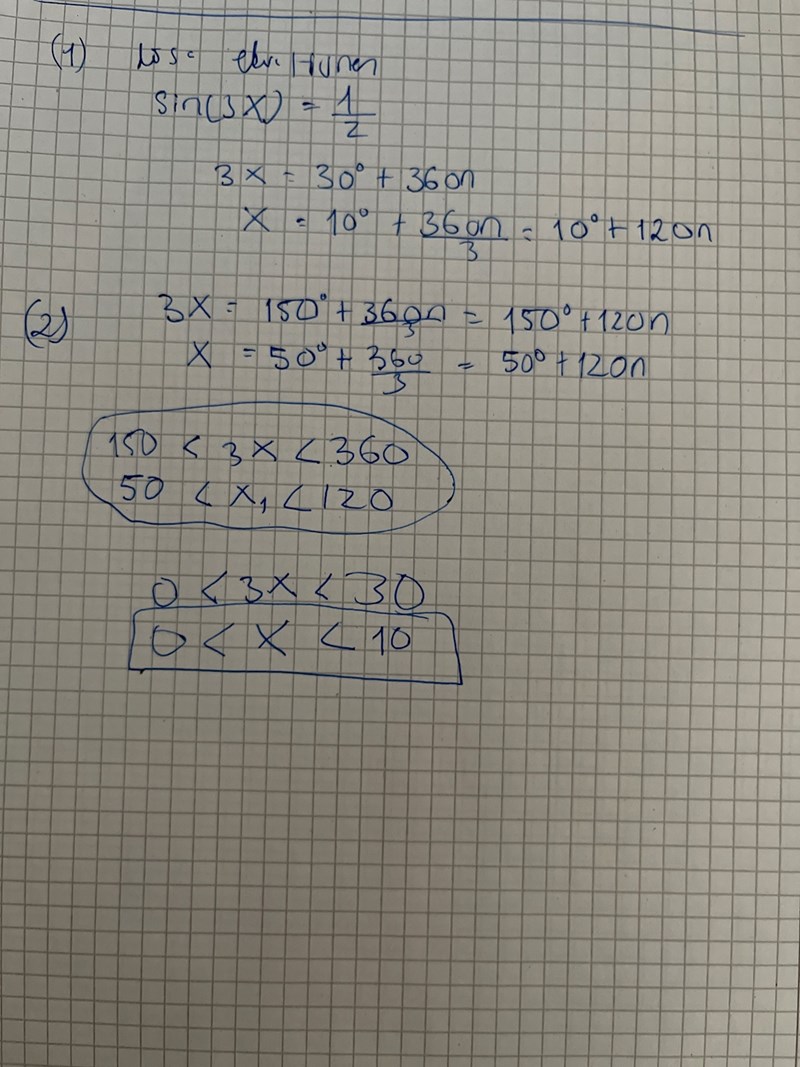 (1) Lös ekvationen
sin(3x) = 1/2
3x = 30° + 360n
x = 10° + 360n/3 = 10° + 120n
(2) 3x = 150° + 360n/3 = 150° + 120n
x = 50° + 360/3 = 50° + 120n
150 < 3x < 360
50 < x₁ < 120
0 < 3x < 30
0 < x < 10